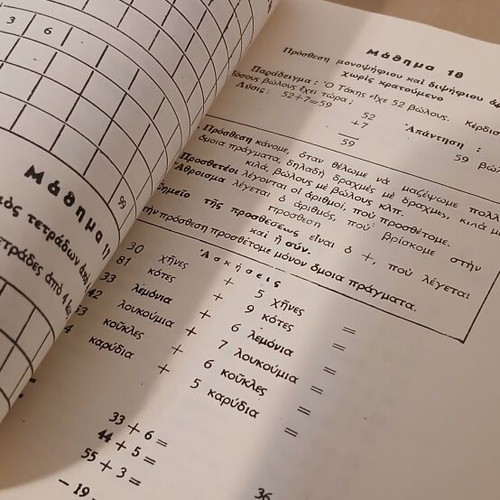 3 6
99
Μάθημα 17
μὸς τετράδων ἀπὸ
τετράδες ἀπό 4
Μάθημα 18
Πρόσθεση μονοψήφιου καί διψήφιου
χωρίς κρατούμενο
Παράδειγμα : Ὁ Τάκης εἶχε 52 βώλους. Κέρδισε
Πόσους βώλους ἔχει τώρα ;
Λύσις : 52+7=59
52
+7
59
Ἀπάντηση :
59
Πρόσθεση κάνομε, ὅταν θέλωμε νά μαζέψωμε
ὅμοια πράγματα, δηλαδή δραχμές μέ δραχμές, κιλά μέ
κιλά, βώλους μέ βώλους κλπ.
Προσθετέοι λέγονται οἱ ἀριθμοί, πού προσθέτομε.
Ἄθροισμα λέγεται ὁ ἀριθμός, πού βρίσκομε στήν
πρόσθεση
Σημεῖο τῆς προσθέσεως εἶναι ὁ +, πού λέγεται
καί ἤ σύν.
τήν πρόσθεση προσθέτομε μόνον ὅμοια πράγματα.
Ἀσκήσεις
30 χῆνες + 5 χῆνες =
81 κότες + 9 κότες =
33 λεμόνια + 6 λεμόνια =
42 λουκούμια + 7 λουκούμια =
κοῦκλες + 6 κοῦκλες =
καρύδια + 5 καρύδια =
33 + 6 =
44 + 5 =
55 + 3 =
– 19
36